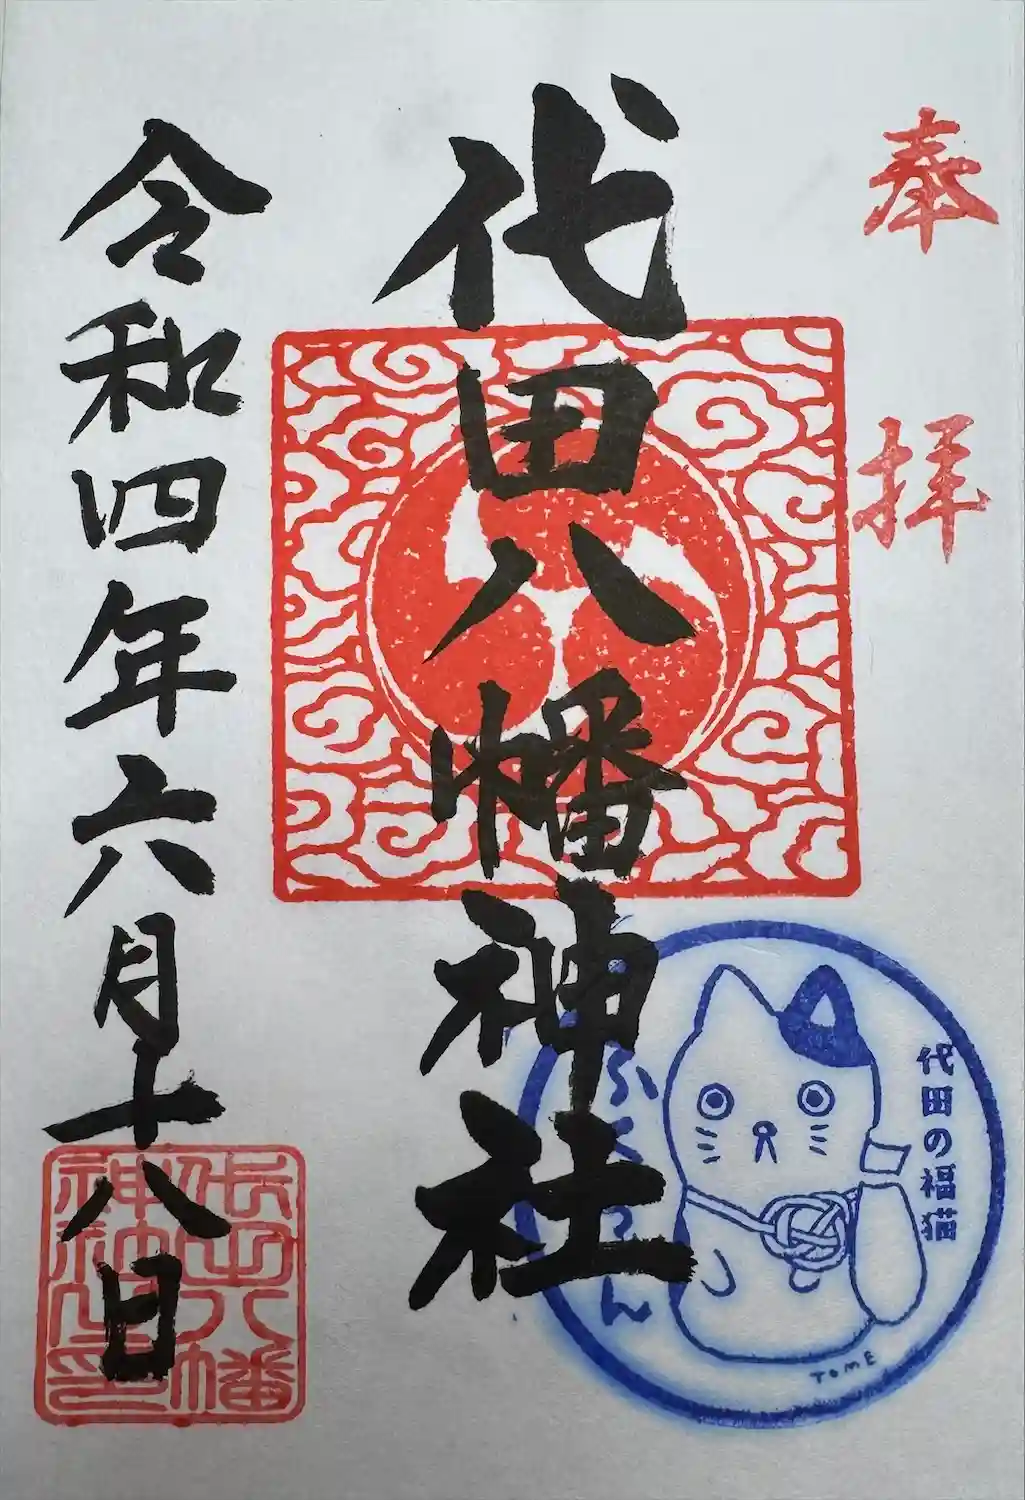 奉拝
代田八幡神社
令和四年六月十八日
代田八幡
神社之印
代田の福猫
TOME